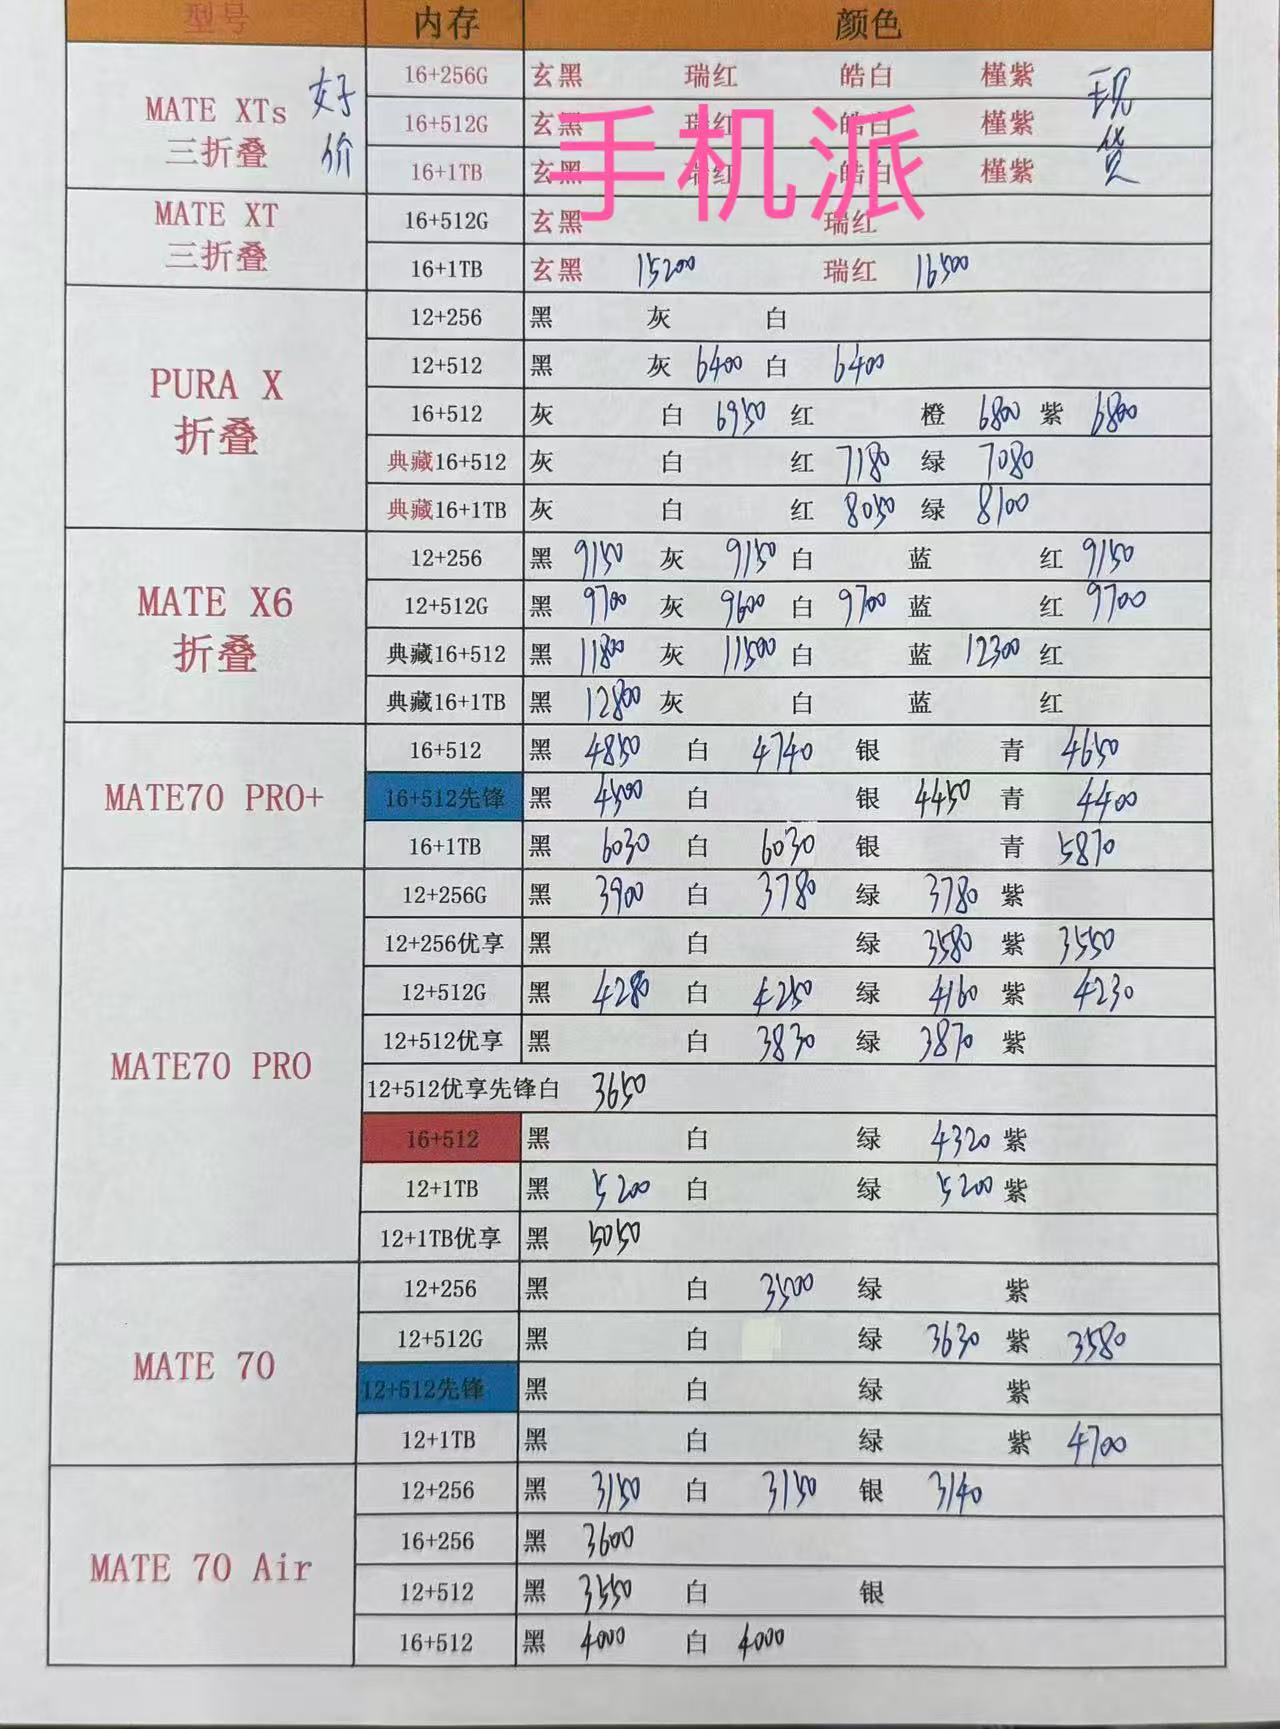 型号 内存 颜色
MATE XTs 三折叠 好价 16+256G 玄黑 瑞红 皓白 槿紫 现货
16+512G 玄黑 瑞红 皓白 槿紫
16+1TB 玄黑 瑞红 皓白 槿紫
手机派
MATE XT 三折叠 16+512G 玄黑 瑞红
16+1TB 玄黑 15200 瑞红 16500
PURA X 折叠 12+256 黑 灰 白
12+512 黑 灰 6400 白 6400
16+512 灰 白 6950 红 橙 6800 紫 6800
典藏16+512 灰 白 红 7180 绿 7080
典藏16+1TB 灰 白 红 8050 绿 8100
MATE X6 折叠 12+256 黑 9150 灰 9150 白 蓝 红 9150
12+512G 黑 9700 灰 9600 白 9700 蓝 红 9700
典藏16+512 黑 11800 灰 11500 白 蓝 12300 红
典藏16+1TB 黑 12800 灰 白 蓝 红
MATE70 PRO+ 16+512 黑 4850 白 4740 银 青 4650
16+512先锋 黑 4500 白 银 4450 青 4400
16+1TB 黑 6030 白 6030 银 青 5870
MATE70 PRO 12+256G 黑 3900 白 3780 绿 3780 紫
12+256优享 黑 白 绿 3580 紫 3550
12+512G 黑 4280 白 4250 绿 4160 紫 4230
12+512优享 黑 白 3830 绿 3870 紫
12+512优享先锋白 3650
16+512 黑 白 绿 4320 紫
12+1TB 黑 5200 白 绿 5200 紫
12+1TB优享 黑 5050
MATE 70 12+256 黑 白 3500 绿 紫
12+512G 黑 白 绿 3630 紫 3580
12+512先锋 黑 白 绿 紫
12+1TB 黑 白 绿 紫 4700
MATE 70 Air 12+256 黑 3150 白 3150 银 3140
16+256 黑 3600
12+512 黑 3550 白 银
16+512 黑 4000 白 4000